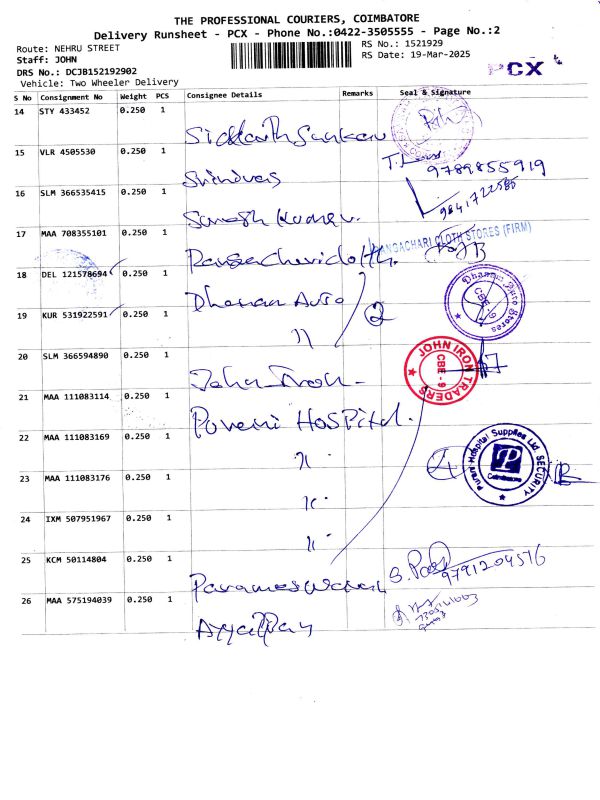 THE PROFESSIONAL COURIERS, COIMBATORE
Delivery Runsheet - PCX - Phone No.:0422-3505555 - Page No.:2
Route: NEHRU STREET
RS No.: 1521929
Staff: JOHN
RS Date: 19-Mar-2025
DRS No.: DCJB152192902
PCX
Vehicle: Two Wheeler Delivery
S No Consignment No Weight PCS Consignee Details Remarks Seal & Signature
14 STY 433452 0.250 1
15 VLR 4505530 0.250 1 9789855919
16 SLM 366535415 0.250 1
17 MAA 708355101 0.250 1 RANGACHARI CLOTH STORES (FIRM)
18 DEL 121578694 0.250 1 Dhanam Auto Dhanam Auto Stores CBE-9
19 KUR 531922591 0.250 1 " 2
20 SLM 366594890 0.250 1 John Iron JOHN IRON TRADERS CBE - 9
21 MAA 111083114 0.250 1 Hospital.
22 MAA 111083169 0.250 1 " 4 Purani Hospital Supplies Ltd SECURITY P Coimbatore
23 MAA 111083176 0.250 1 "
24 IXM 507951967 0.250 1 "
25 KCM 50114804 0.250 1 Parameswaran
26 MAA 575194039 0.250 1